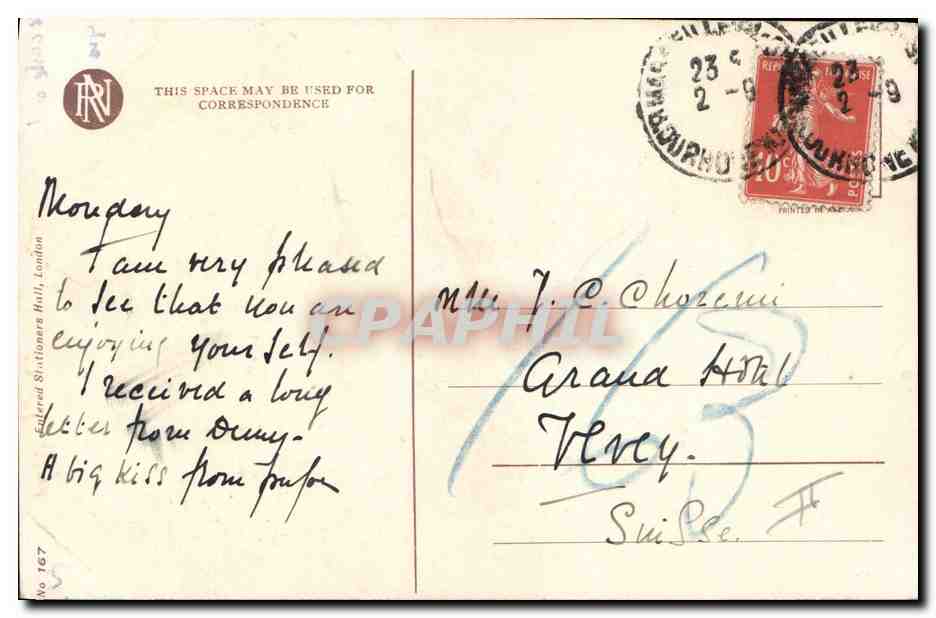 RN
THIS SPACE MAY BE USED FOR
CORRESPONDENCE
23
2 - 9
23
2 - 9
10 c
POSTES
PRINTED IN
Monday
I am very pleased
to see that you are
enjoying yourself.
I received a long
letter from
A big kiss from
Mlle J. C. Choremi
Grand Hôtel
Vevey.
Suisse
II
CPAPHIL
Entered Stationers Hall, London
No 167